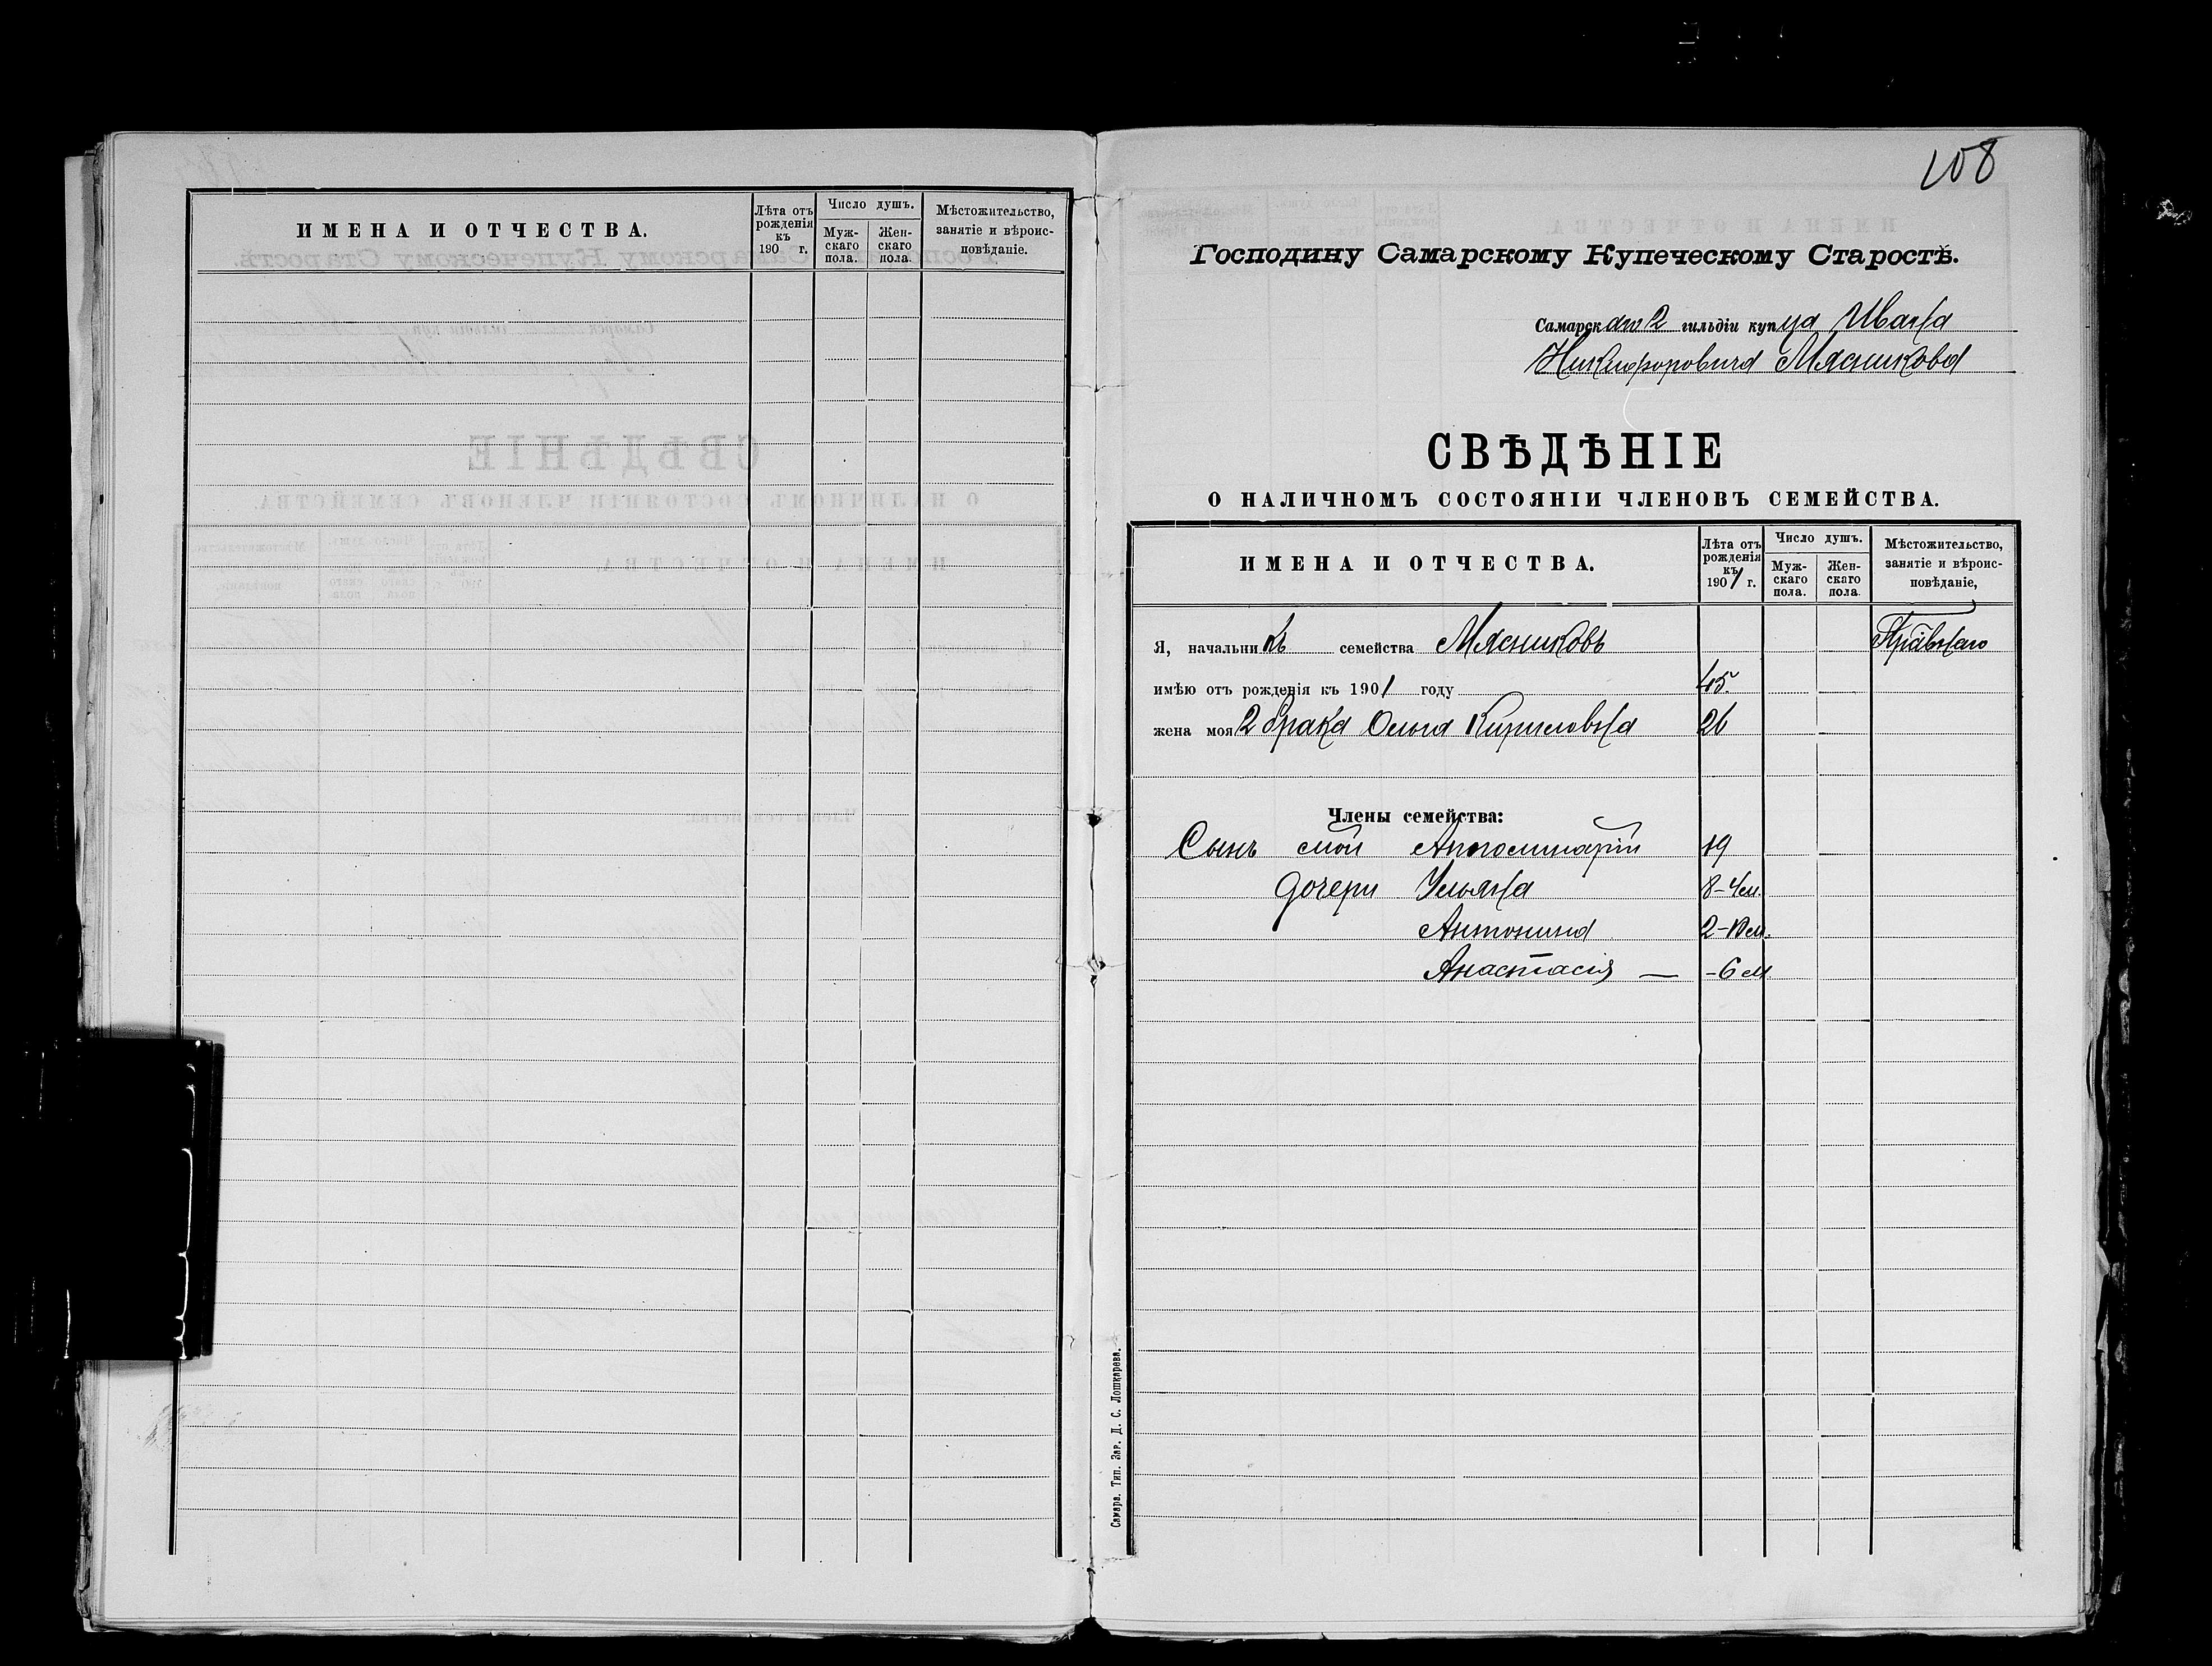 ИМЕНА И ОТЧЕСТВА.
Лѣта отъ рожденія къ 190 г.
Число душъ.
Мужскаго пола.
Женскаго пола.
Мѣстожительство, занятіе и вѣроисповѣданіе.
108
Господину Самарскому Купеческому Старостѣ.
Самарскаго 2 гильдіи купца Ивана
Никифоровича Мясникова
СВѢДѢНІЕ
О НАЛИЧНОМЪ СОСТОЯНІИ ЧЛЕНОВЪ СЕМЕЙСТВА.
ИМЕНА И ОТЧЕСТВА.
Лѣта отъ рожденія къ 1901 г.
Число душъ.
Мужскаго пола.
Женскаго пола.
Мѣстожительство, занятіе и вѣроисповѣданіе,
Я, начальникъ семейства Мясниковъ
имѣю отъ рожденія къ 1901 году 45.
жена моя 2 брака Ольга Кириловна 26
Члены семейства:
Сынъ мой 19
дочери Ульяна 8-4м.
Антонина 2-10м.
Анастасія — -6 м
Самара. Тип. Зар. Д. С. Лошкарева.